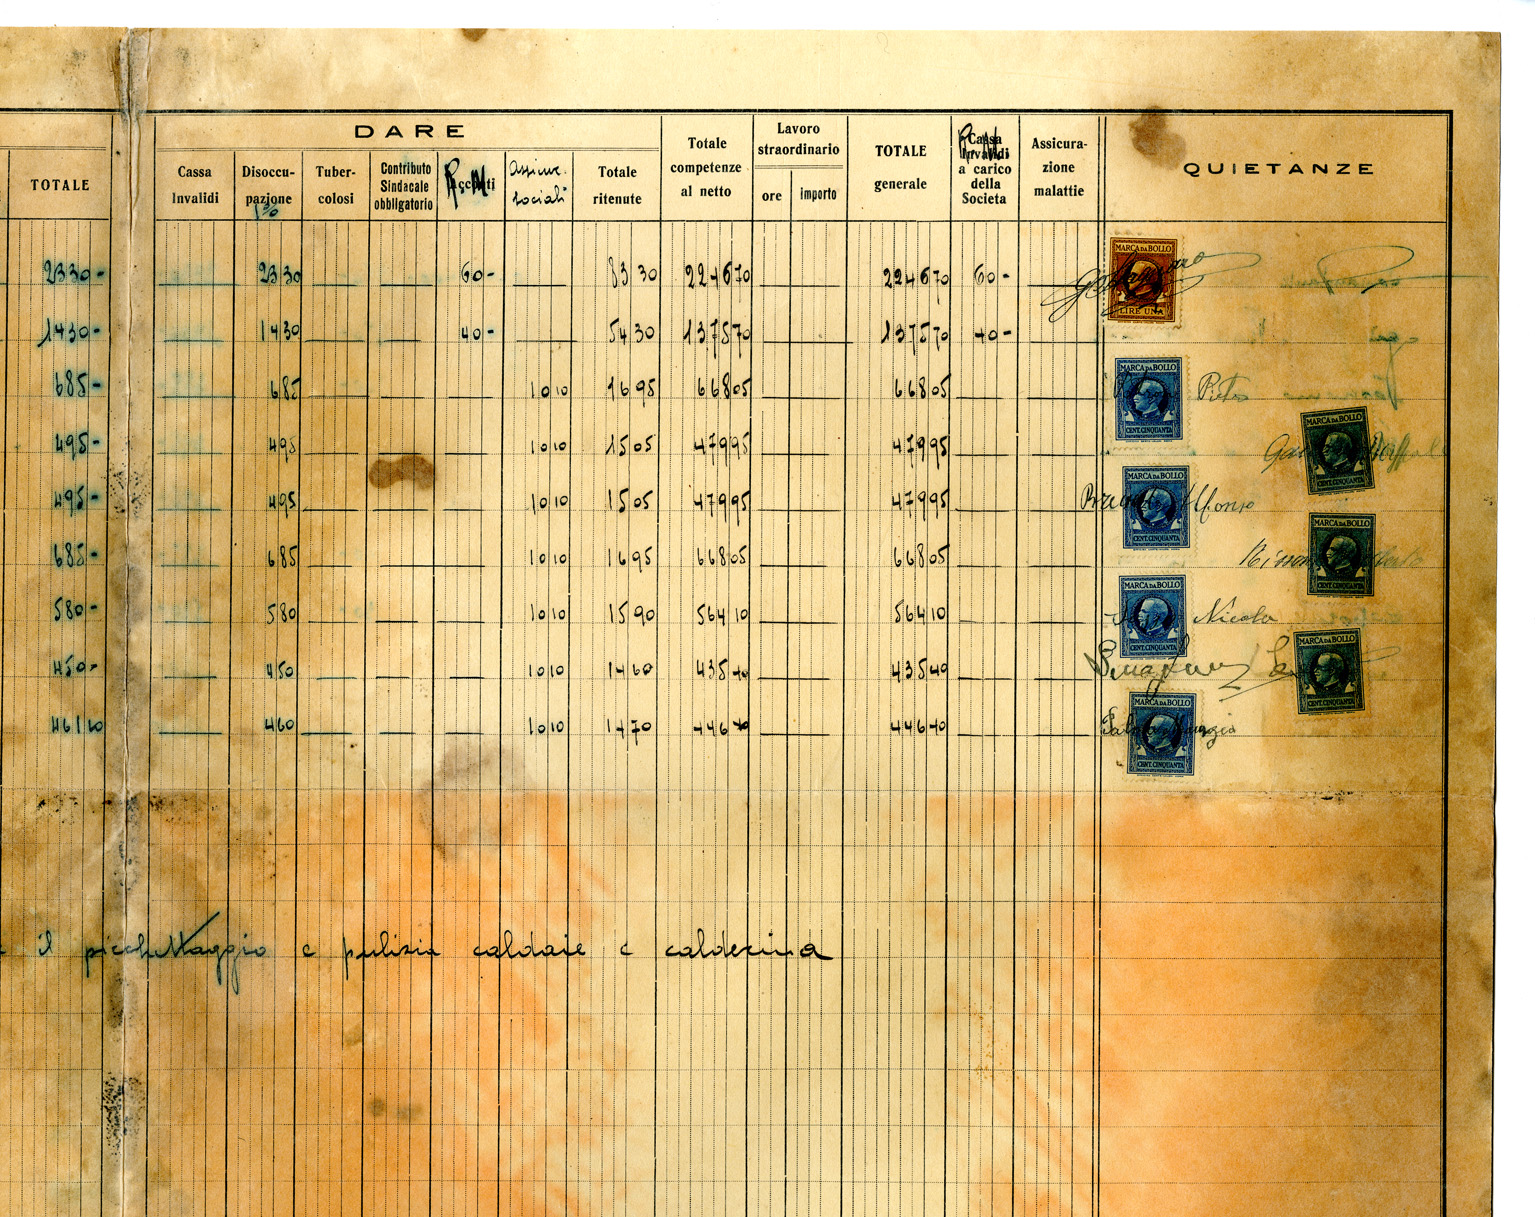 DARE
QUIETANZE
TOTALE
Cassa Invalidi
Disoccupazione 1%
Tubercolosi
Contributo Sindacale obbligatorio
R.M.
Assicur. sociali
Totale ritenute
Totale competenze al netto
Lavoro straordinario
ore
importo
TOTALE generale
R.M. a carico della Societa
Assicurazione malattie
2330- 23 30 60- 83 30 2246 70 2246 70 60-
MARCA DA BOLLO LIRE UNA
1430- 14 30 40- 54 30 1375 70 1375 70 40-
685- 6 85 10 10 16 95 668 05 668 05 Pietro
MARCA DA BOLLO CENT. CINQUANTA
495- 4 95 10 10 15 05 479 95 479 95
MARCA DA BOLLO CENT. CINQUANTA
495- 4 95 10 10 15 05 479 95 479 95 Alfonso
MARCA DA BOLLO CENT. CINQUANTA
685- 6 85 10 10 16 95 668 05 668 05
MARCA DA BOLLO CENT. CINQUANTA
580- 5 80 10 10 15 90 564 10 564 10 Nicola
MARCA DA BOLLO CENT. CINQUANTA
450- 4 50 10 10 14 60 435 40 435 40
MARCA DA BOLLO CENT. CINQUANTA
461 10 4 60 10 10 14 70 446 40 446 40
MARCA DA BOLLO CENT. CINQUANTA
il picchettaggio e pulizia caldaie e calderina